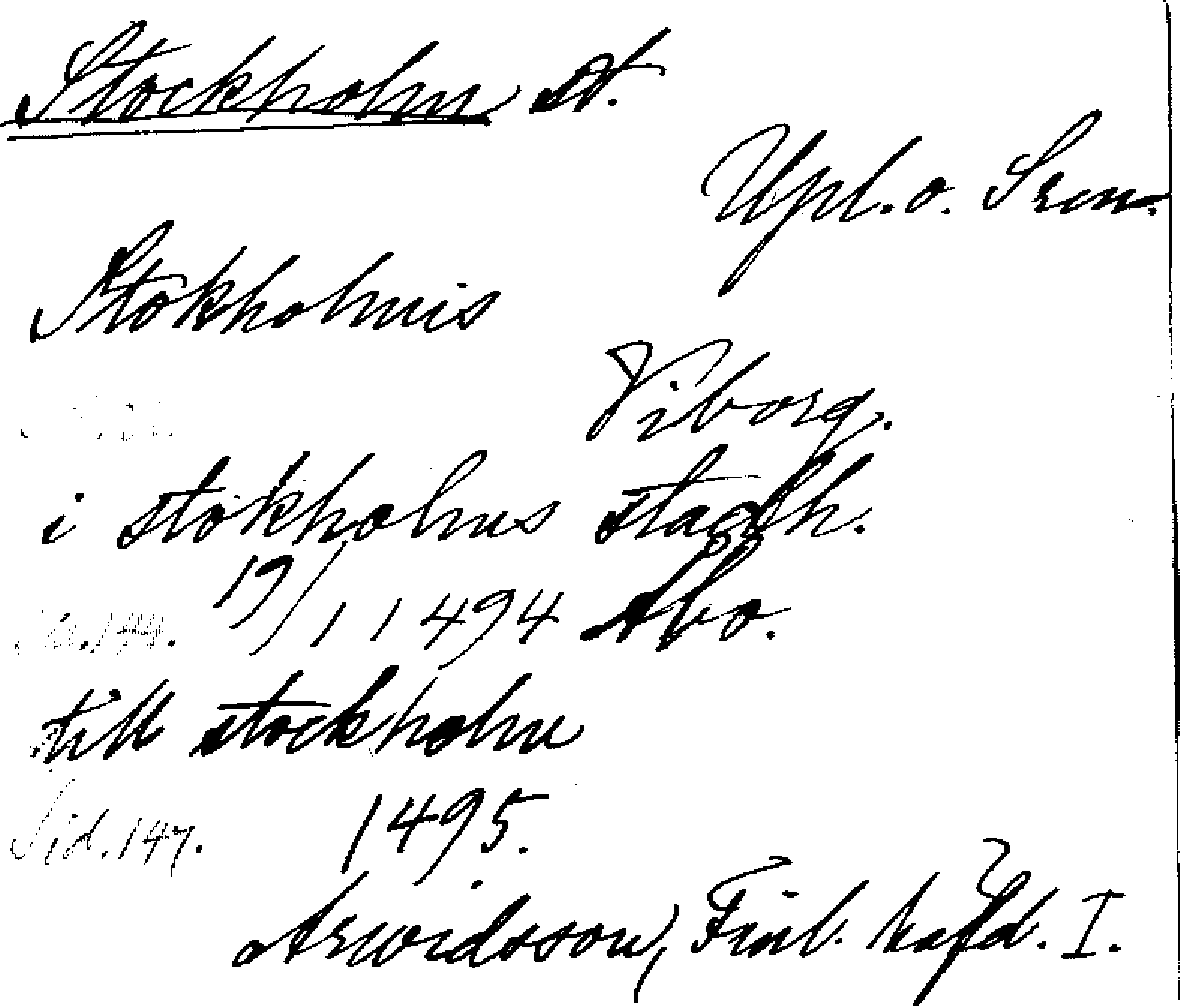 Stockholm st.
Upl. o. Srm.
Stokholmis
Viborg.
i stokholms stadh.
19/1 1494 Åbo.
144.
till stockholm
Sid. 147. 1495.
Arwidsson, Finl. häfd. I.